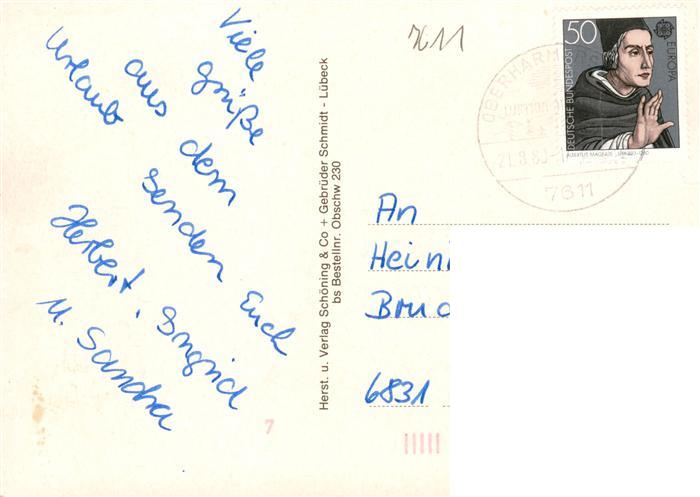 Viele
Grüße
aus dem
Urlaub
senden Euch
Herbert, Ingrid
u. Sandra
Herst. u. Verlag Schöning & Co + Gebrüder Schmidt - Lübeck
bs Bestellnr. Obschw 230
7611
50
DEUTSCHE BUNDESPOST
EUROPA
ALBERTUS MAGNUS
OBERHARM
21.8.80
7611
An
Hein
Bruc
6831
7